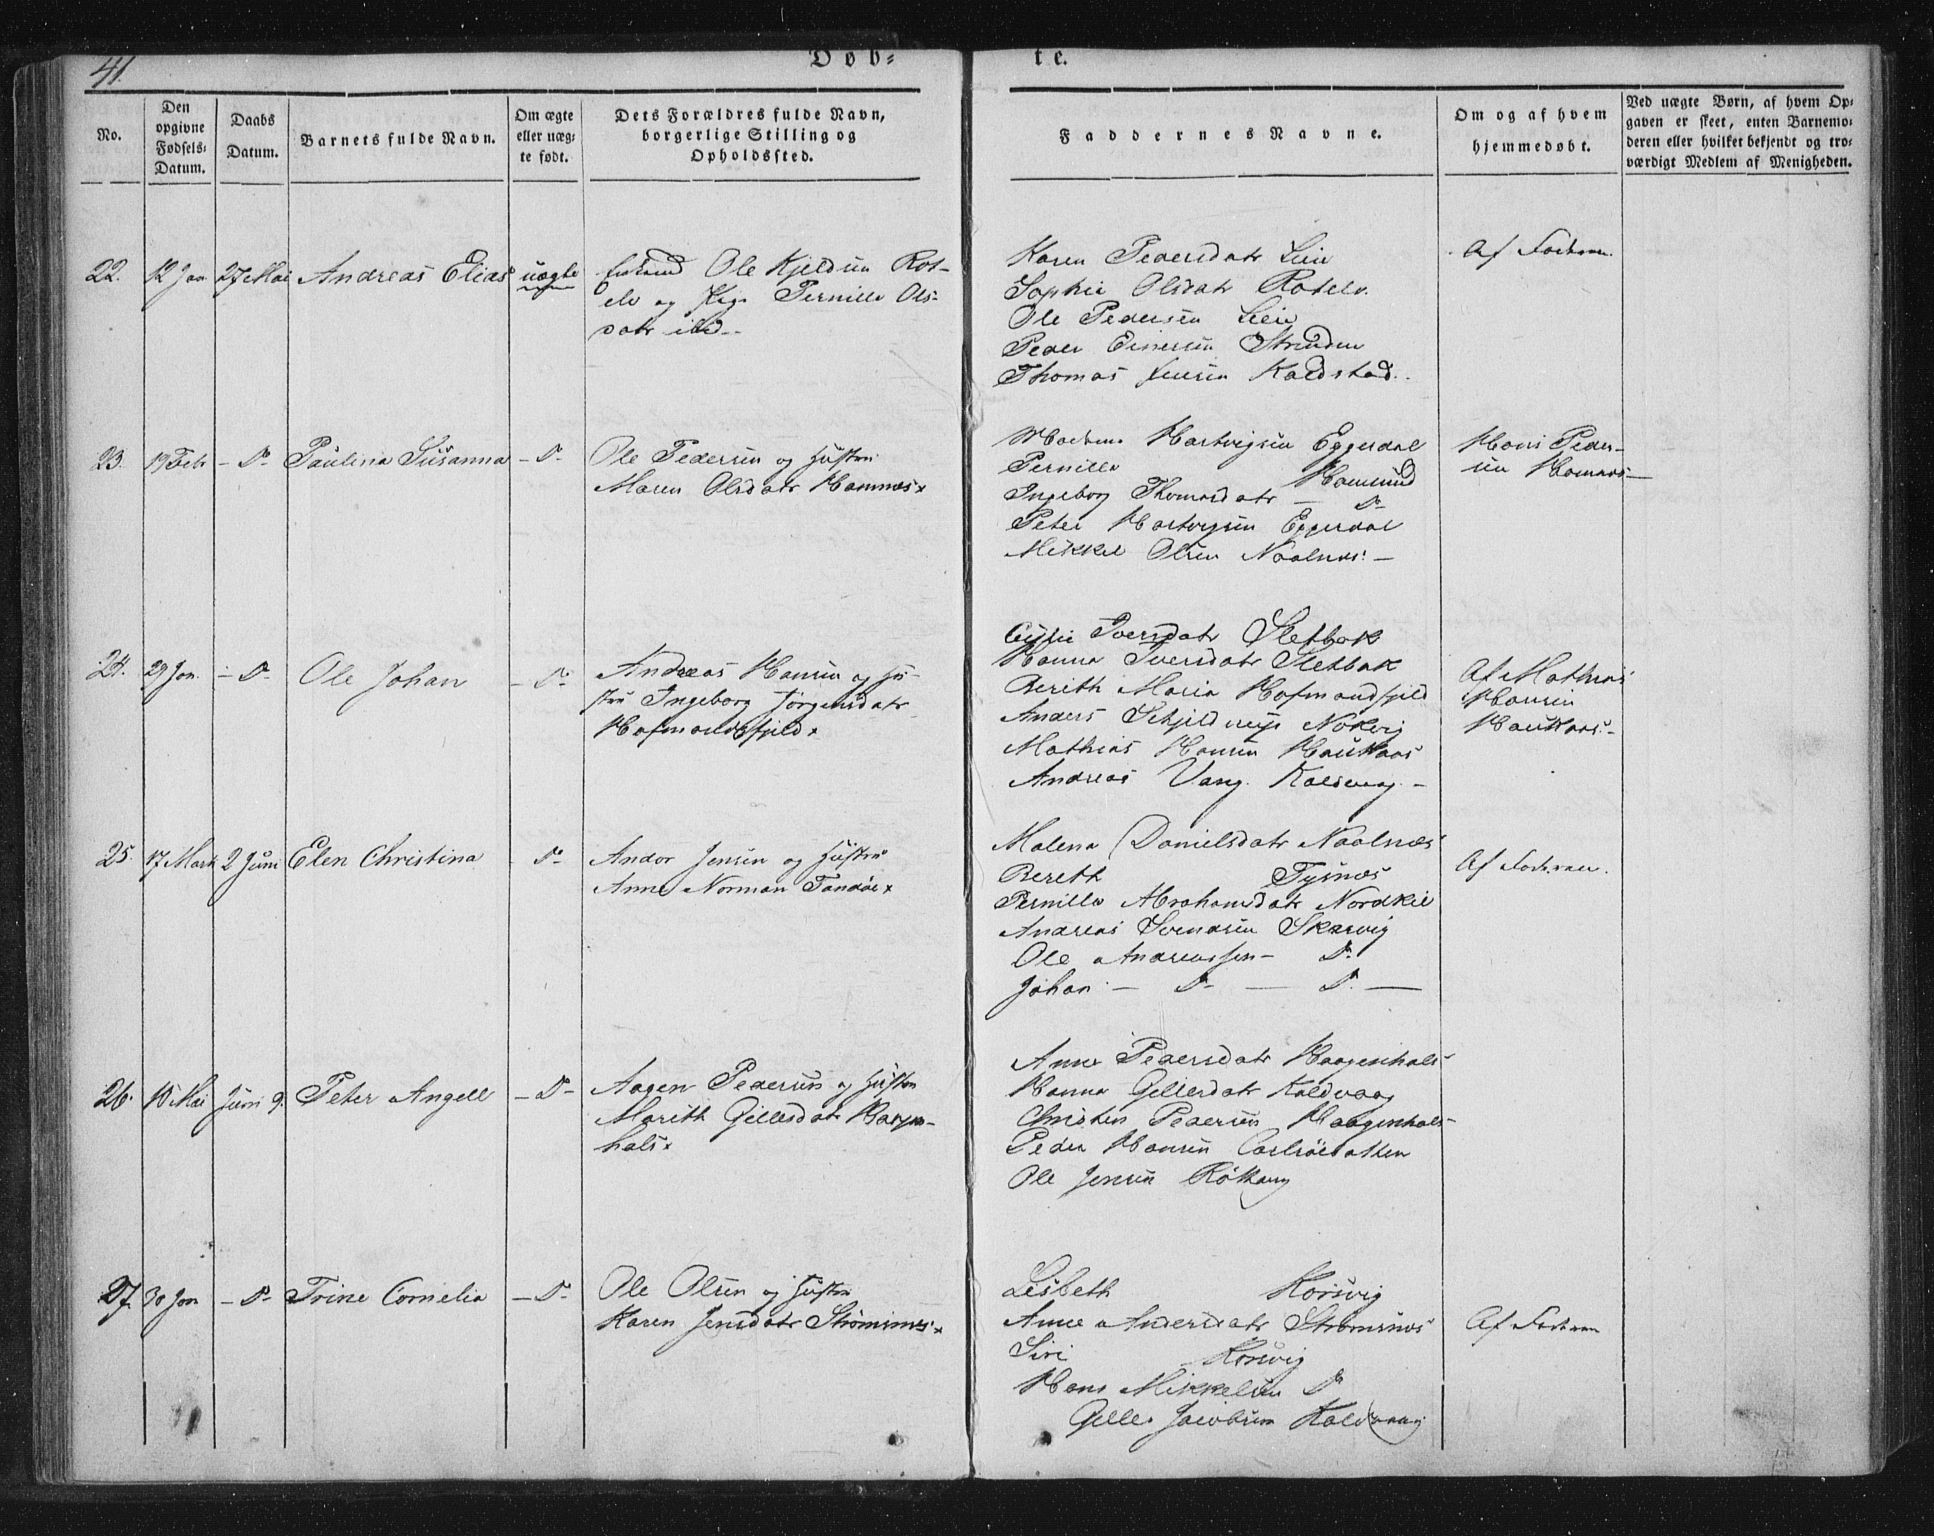 41.
Døb=
te.
No.
Den opgivne Fødsels-Datum.
Daabs Datum.
Barnets fulde Navn.
Om ægte eller uægte født.
Dets Forældres fulde Navn, borgerlige Stilling og Opholdssted.
Faddernes Navne.
Om og af hvem hjemmedøbt.
Ved uægte Børn, af hvem Opgaven er skeet, enten Barnemoderen eller hvilket bekjendt og troværdigt Medlem af Menigheden.
22. 12 Jan 27 Mai Andreas Elias uægte
Ole Kjeldsen Rot-
elv og Pige Pernille Ols-
datr ibid.
Karen Pedersdatr Leir
Sophie Olsdatr Rotelv.
Ole Pedersen Leir
Peder Einersen Stranden
Thomas Jensen Kaldstad.
Af Faderen.
23. 19 Febr - D- Paulina Susanna - D-
Ole Pedersen og Hustru
Maren Olsdatr Hamnes x
Hartvigsen Eggerdal
Pernille Hamsund
Ingeborg Thomasdatr - D-
Peter Hartvigsen Eggerdal
Mikkel Olsen Naalnæs. -
Hans Peder-
sen Hamnes -
24. 29 Jan. - D- Ole Johan - D-
Andreas Hansen og Hu-
stru Ingeborg Jørgensdatr
Hofmandsfjeld x
Iversdatr Sletbak
Hanna Iversdatr Sletbak
Berith Maria Hofmandsfjeld
Anders Schjeldrup Nokvig
Mathias Hansen
Andreas Vang. Kaldvaag. -
Af Mathias
Hansen
25. 17 Marts 2 Juni Elen Christina - D-
Andor Jensen og Hustru
Anne Norman Tandøe x
Malena Danielsdatr Naalnæs
Bereth Tysnæs
Pernille Abrahamsdatr Nordkil
Andreas Svendsen Skarvig
Ole Andreassen - D-
Johan - D- - D. -
Af Faderen.
26. 10 Mai Juni 9. Peter Angell - D-
Aagen Pedersen og Hustru
Marith Gellesdatr Haagen-
hals x
Anne Pedersdatr Haagenhals
Hanna Gellesdatr Kaldvaag
Christen Pedersen Haagenhals -
Peder Hansen
Ole Jensen Røttang
27. 30 Jan - D- Trine Cornelia - D-
Ole Olsen og Hustru
Karen Jensdatr Strømsnes x
Lisbeth Korsvig
Anne Andersdatr Strømsnæs
Siri Korsvig
Hans Mikkelsen D-
Gelle Jacobsen Kaldvaag
Af Faderen